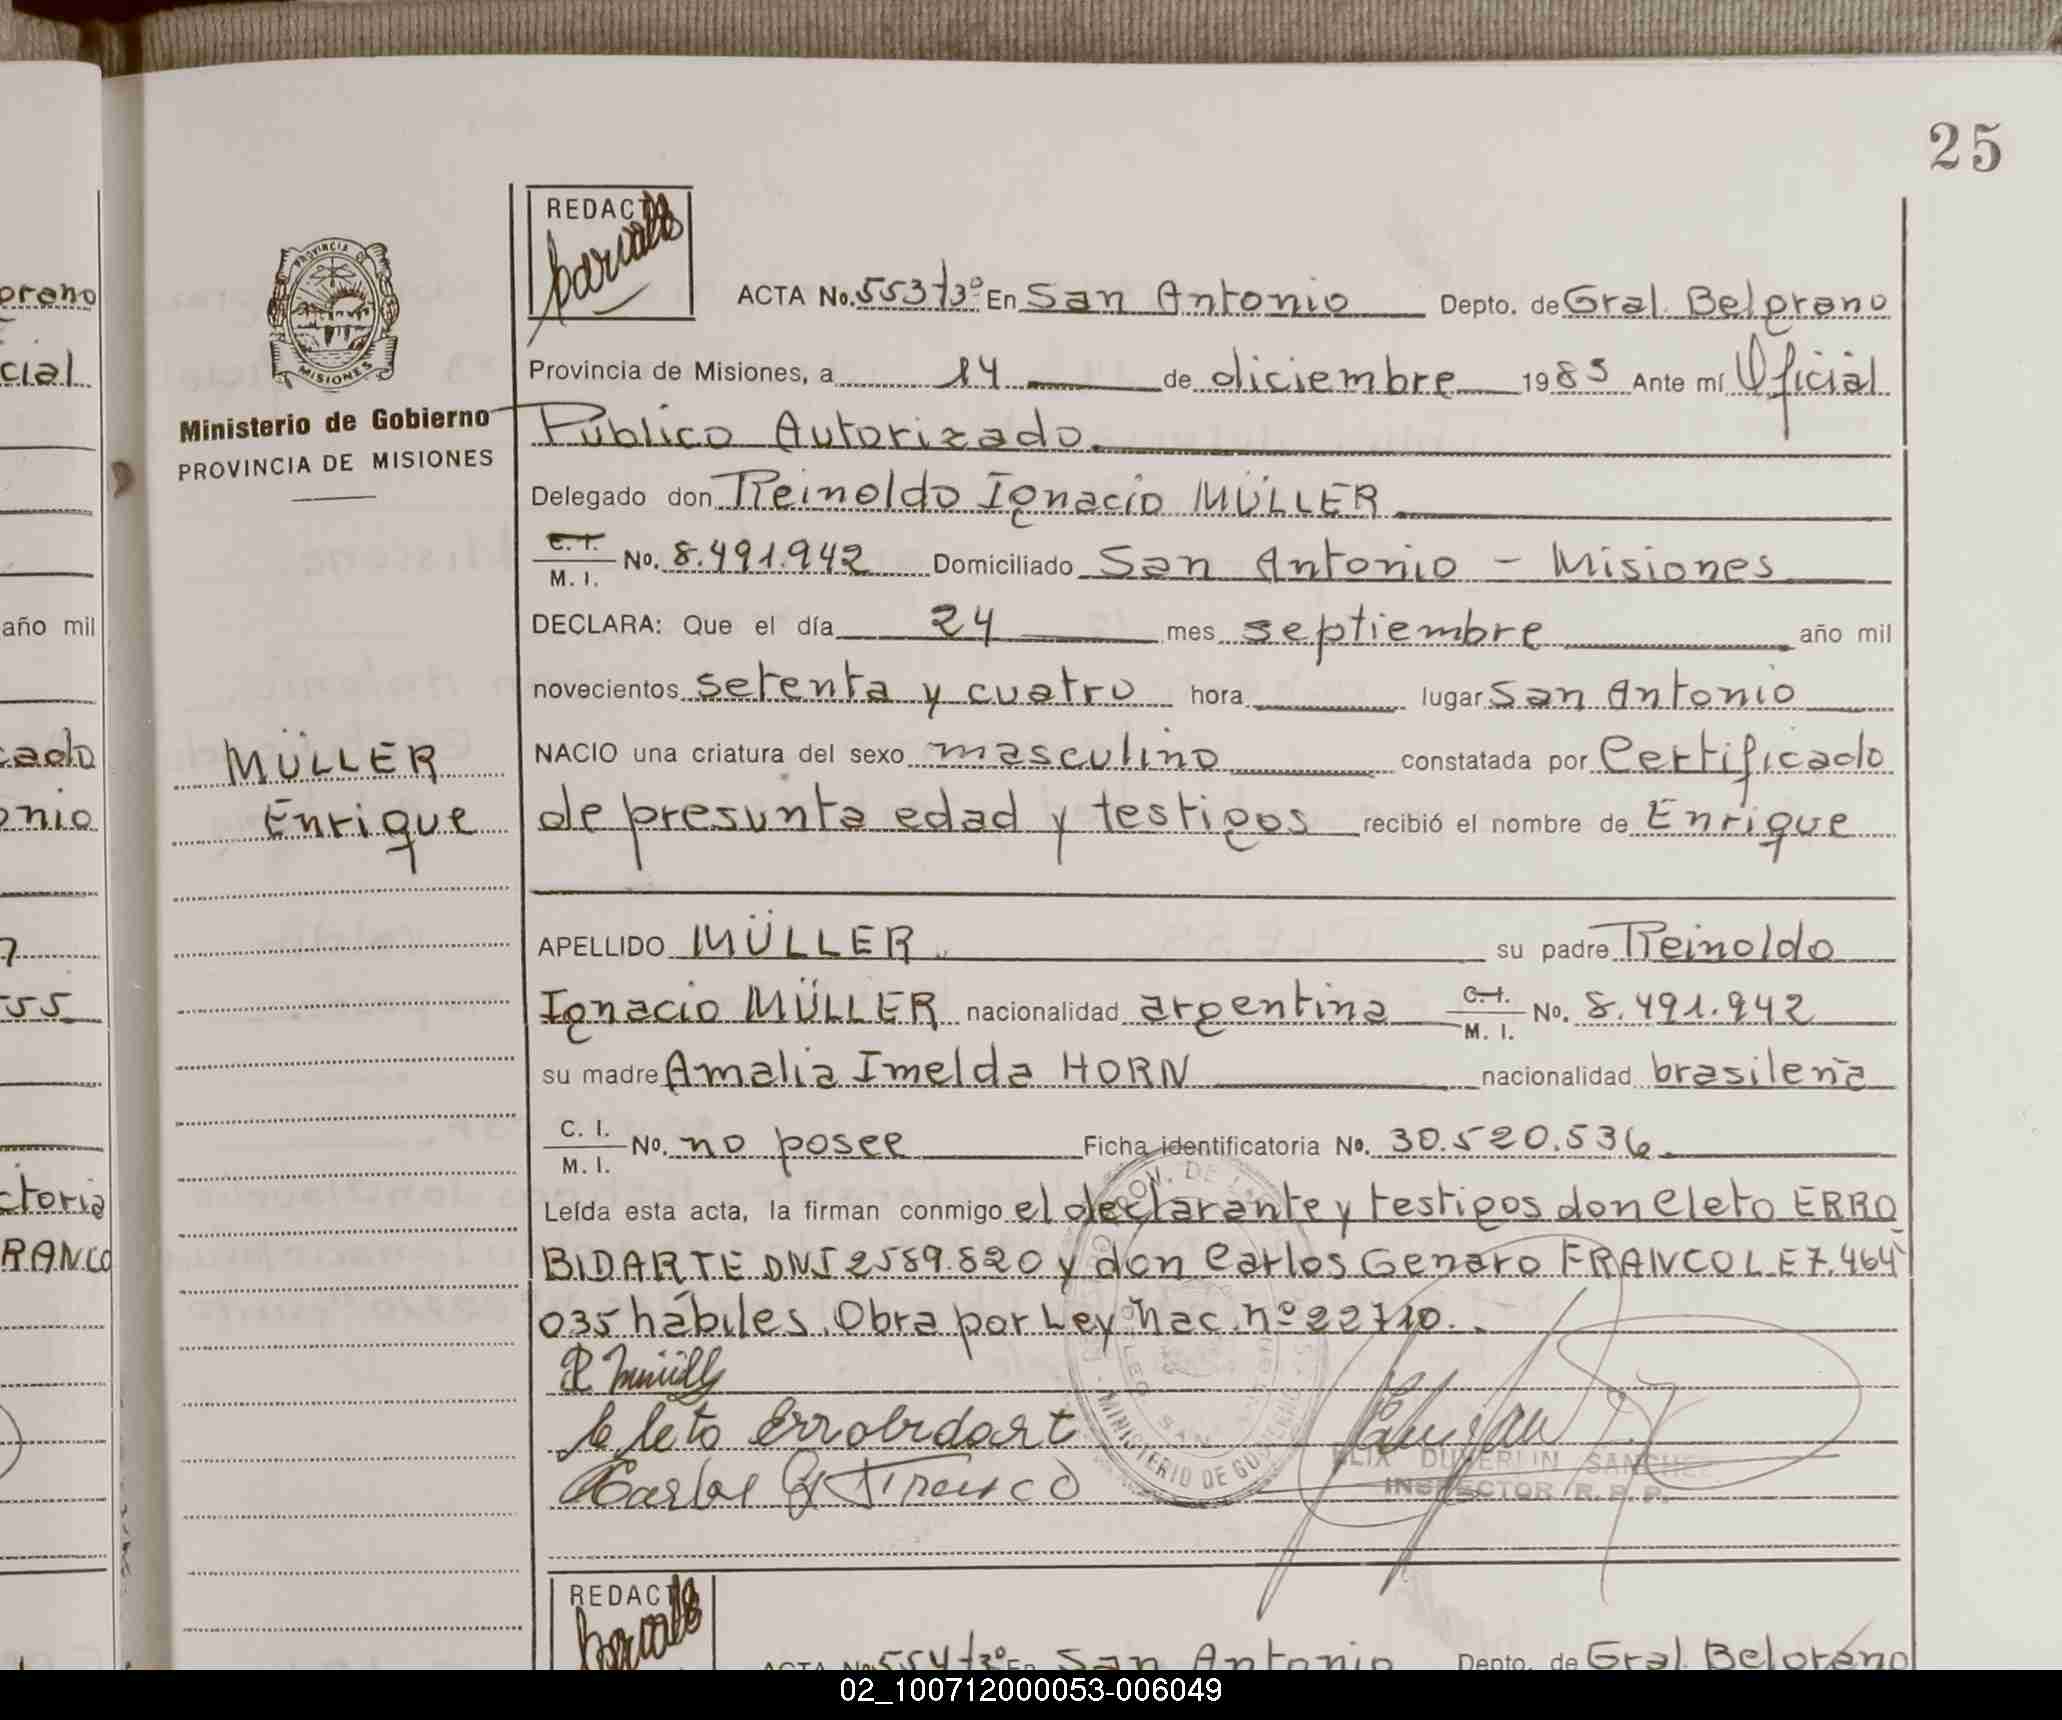 25
REDACTO
PROVINCIA DE
MISIONES
Ministerio de Gobierno
PROVINCIA DE MISIONES
ACTA No. 553 T3º En San Antonio Depto. de Gral. Belgrano
Provincia de Misiones, a 14 de diciembre 1985 Ante mí Oficial
Público Autorizado.
Delegado don Reinoldo Ignacio MÜLLER
C.I. M.I. No. 8.491.942 Domiciliado San Antonio - Misiones
DECLARA: Que el día 24 mes septiembre año mil
novecientos setenta y cuatro hora lugar San Antonio
NACIO una criatura del sexo masculino constatada por Certificado
de presunta edad y testigos recibió el nombre de Enrique
MÜLLER
Enrique
APELLIDO MÜLLER su padre Reinoldo
Ignacio MÜLLER nacionalidad argentina C.I. M.I. No. 8.491.942
su madre Amalia Imelda HORN nacionalidad brasileña
C.I. M.I. No. no posee Ficha identificatoria No. 30.520.536
Leída esta acta, la firman conmigo el declarante y testigos don Cleto ERRO
BIDARTE DNI 2589.820 y don Carlos Genaro FRANCO L E 7.464
035 hábiles. Obra por Ley Nac. nº 22710.
Cleto Errobidart
Carlos G Franco
MINISTERIO DE GOBIERNO
SAN
FELIX DUVERLIN SANCHEZ
INSPECTOR R.P.P.
REDACTO
ACTA No. 554 T3º En San Antonio Depto. de Gral. Belgrano
grano
cial
año mil
cado
onio
7
55
ctoria
RANCO
02_100712000053-006049